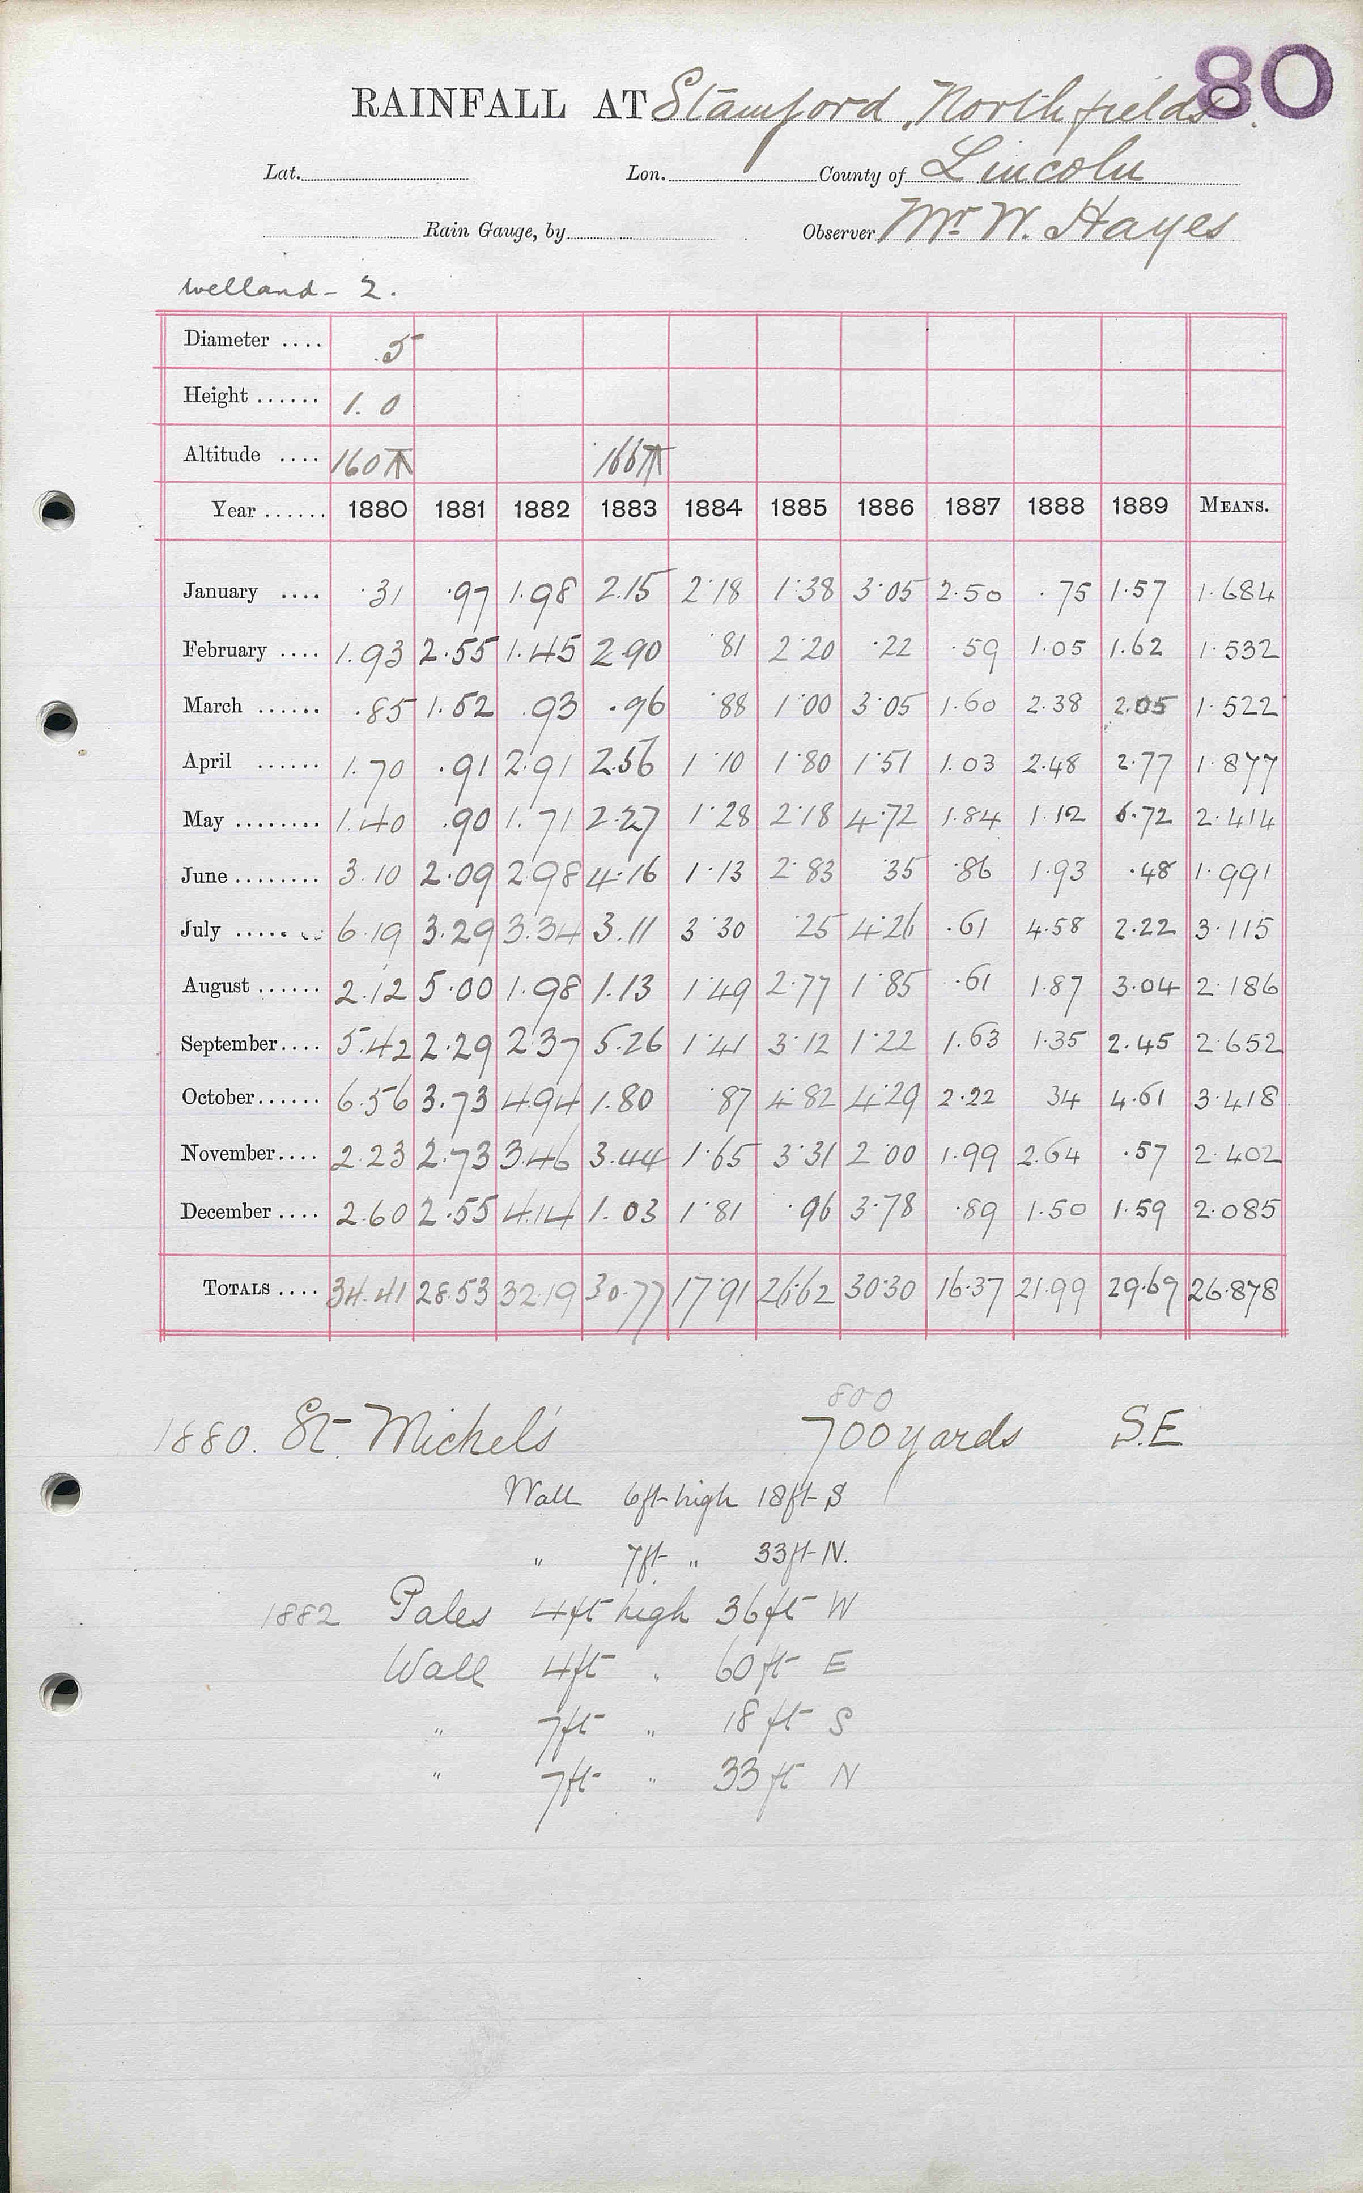 80
RAINFALL AT Stamford, Northfields.
Lat. Lon. County of Lincoln
Rain Gauge, by Observer Mr. W. Hayes
Welland - 2.
Diameter .... 5
Height ...... 1. 0
Altitude .... 160 166
Year ...... 1880 1881 1882 1883 1884 1885 1886 1887 1888 1889 MEANS.
January .... .31 .97 1.98 2.15 2.18 1.38 3.05 2.50 .75 1.57 1.684
February .... 1.93 2.55 1.45 2.90 .81 2.20 .22 .59 1.05 1.62 1.532
March ...... .85 1.52 .93 .96 .88 1.00 3.05 1.60 2.38 2.05 1.522
April ...... 1.70 .91 2.91 2.56 1.10 1.80 1.51 1.03 2.48 2.77 1.877
May ........ 1.40 .90 1.71 2.27 1.28 2.18 4.72 1.84 1.12 6.72 2.414
June ........ 3.10 2.09 2.98 4.16 1.13 2.83 .35 .86 1.93 .48 1.991
July ........ 6.19 3.29 3.34 3.11 3.30 .25 4.26 .61 4.58 2.22 3.115
August ...... 2.12 5.00 1.98 1.13 1.49 2.77 1.85 .61 1.87 3.04 2.186
September .... 5.42 2.29 2.37 5.26 1.41 3.12 1.22 1.63 1.35 2.45 2.652
October ...... 6.56 3.73 4.94 1.80 .87 4.82 4.29 2.22 34 4.61 3.418
November .... 2.23 2.73 3.46 3.44 1.65 3.31 2.00 1.99 2.64 .57 2.402
December .... 2.60 2.55 4.14 1.03 1.81 .96 3.78 .89 1.50 1.59 2.085
TOTALS .... 34.41 28.53 32.19 30.77 17.91 26.62 30.30 16.37 21.99 29.69 26.878
800
1880. St. Michel's 700 yards S.E
Wall 6ft high 18ft S
" 7ft " 33ft N.
1882 Pales 4ft high 36ft W
Wall 4ft " 60ft E
" 7ft " 18ft S
" 7ft " 33ft N